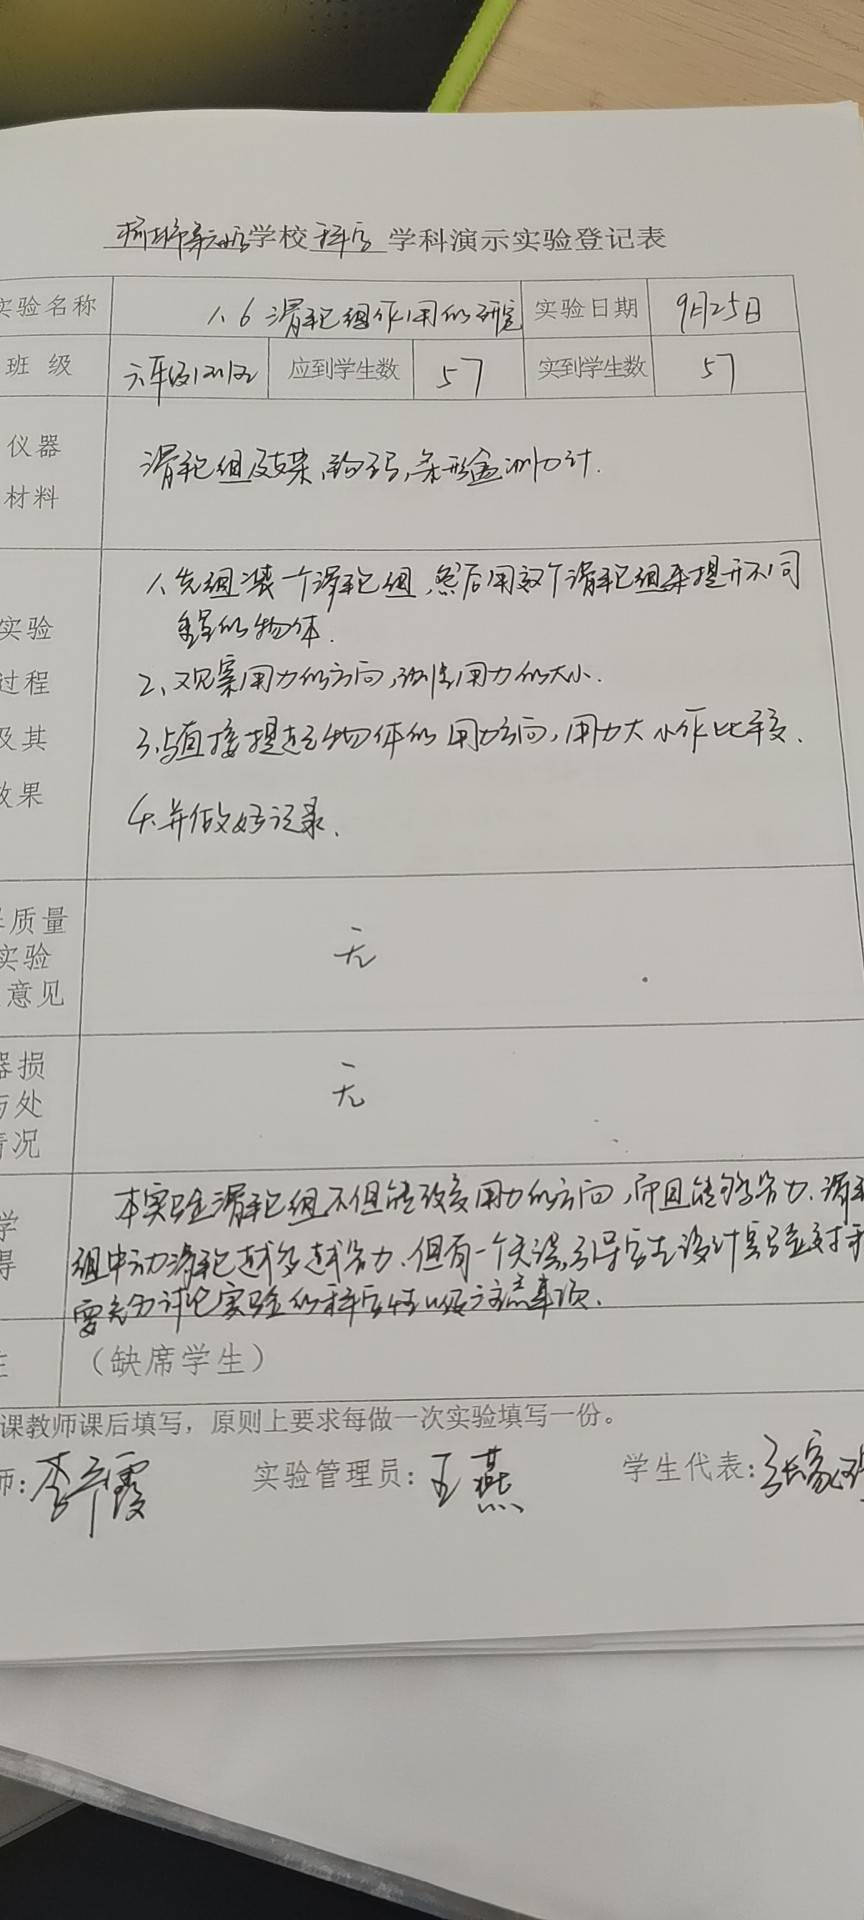 学校 科学 学科演示实验登记表
实验名称 1.6 滑轮组作用的研究 实验日期 9月25日
班 级 六年级 班 应到学生数 57 实到学生数 57
仪器
材料
滑轮组及支架,钩码,条形盒测力计.
1、先组装一个滑轮组,然后用这个滑轮组来提升不同
重量的物体.
2、观察用力的方向,测量用力的大小.
3、与直接提起物体的用力方向,用力大小作比较.
4、并做好记录.
实验
过程
及其
效果
质量
实验
意见
无
器损
与处
情况
无
学
得
本实验滑轮组不但能改变用力的方向,而且能够省力.滑轮
组中动滑轮越多越省力.但有一个失误,引导学生设计实验时
要充分讨论实验的科学性以及注意事项.
注 (缺席学生)
课教师课后填写,原则上要求每做一次实验填写一份。
师: 霞 实验管理员:王燕 学生代表:张家